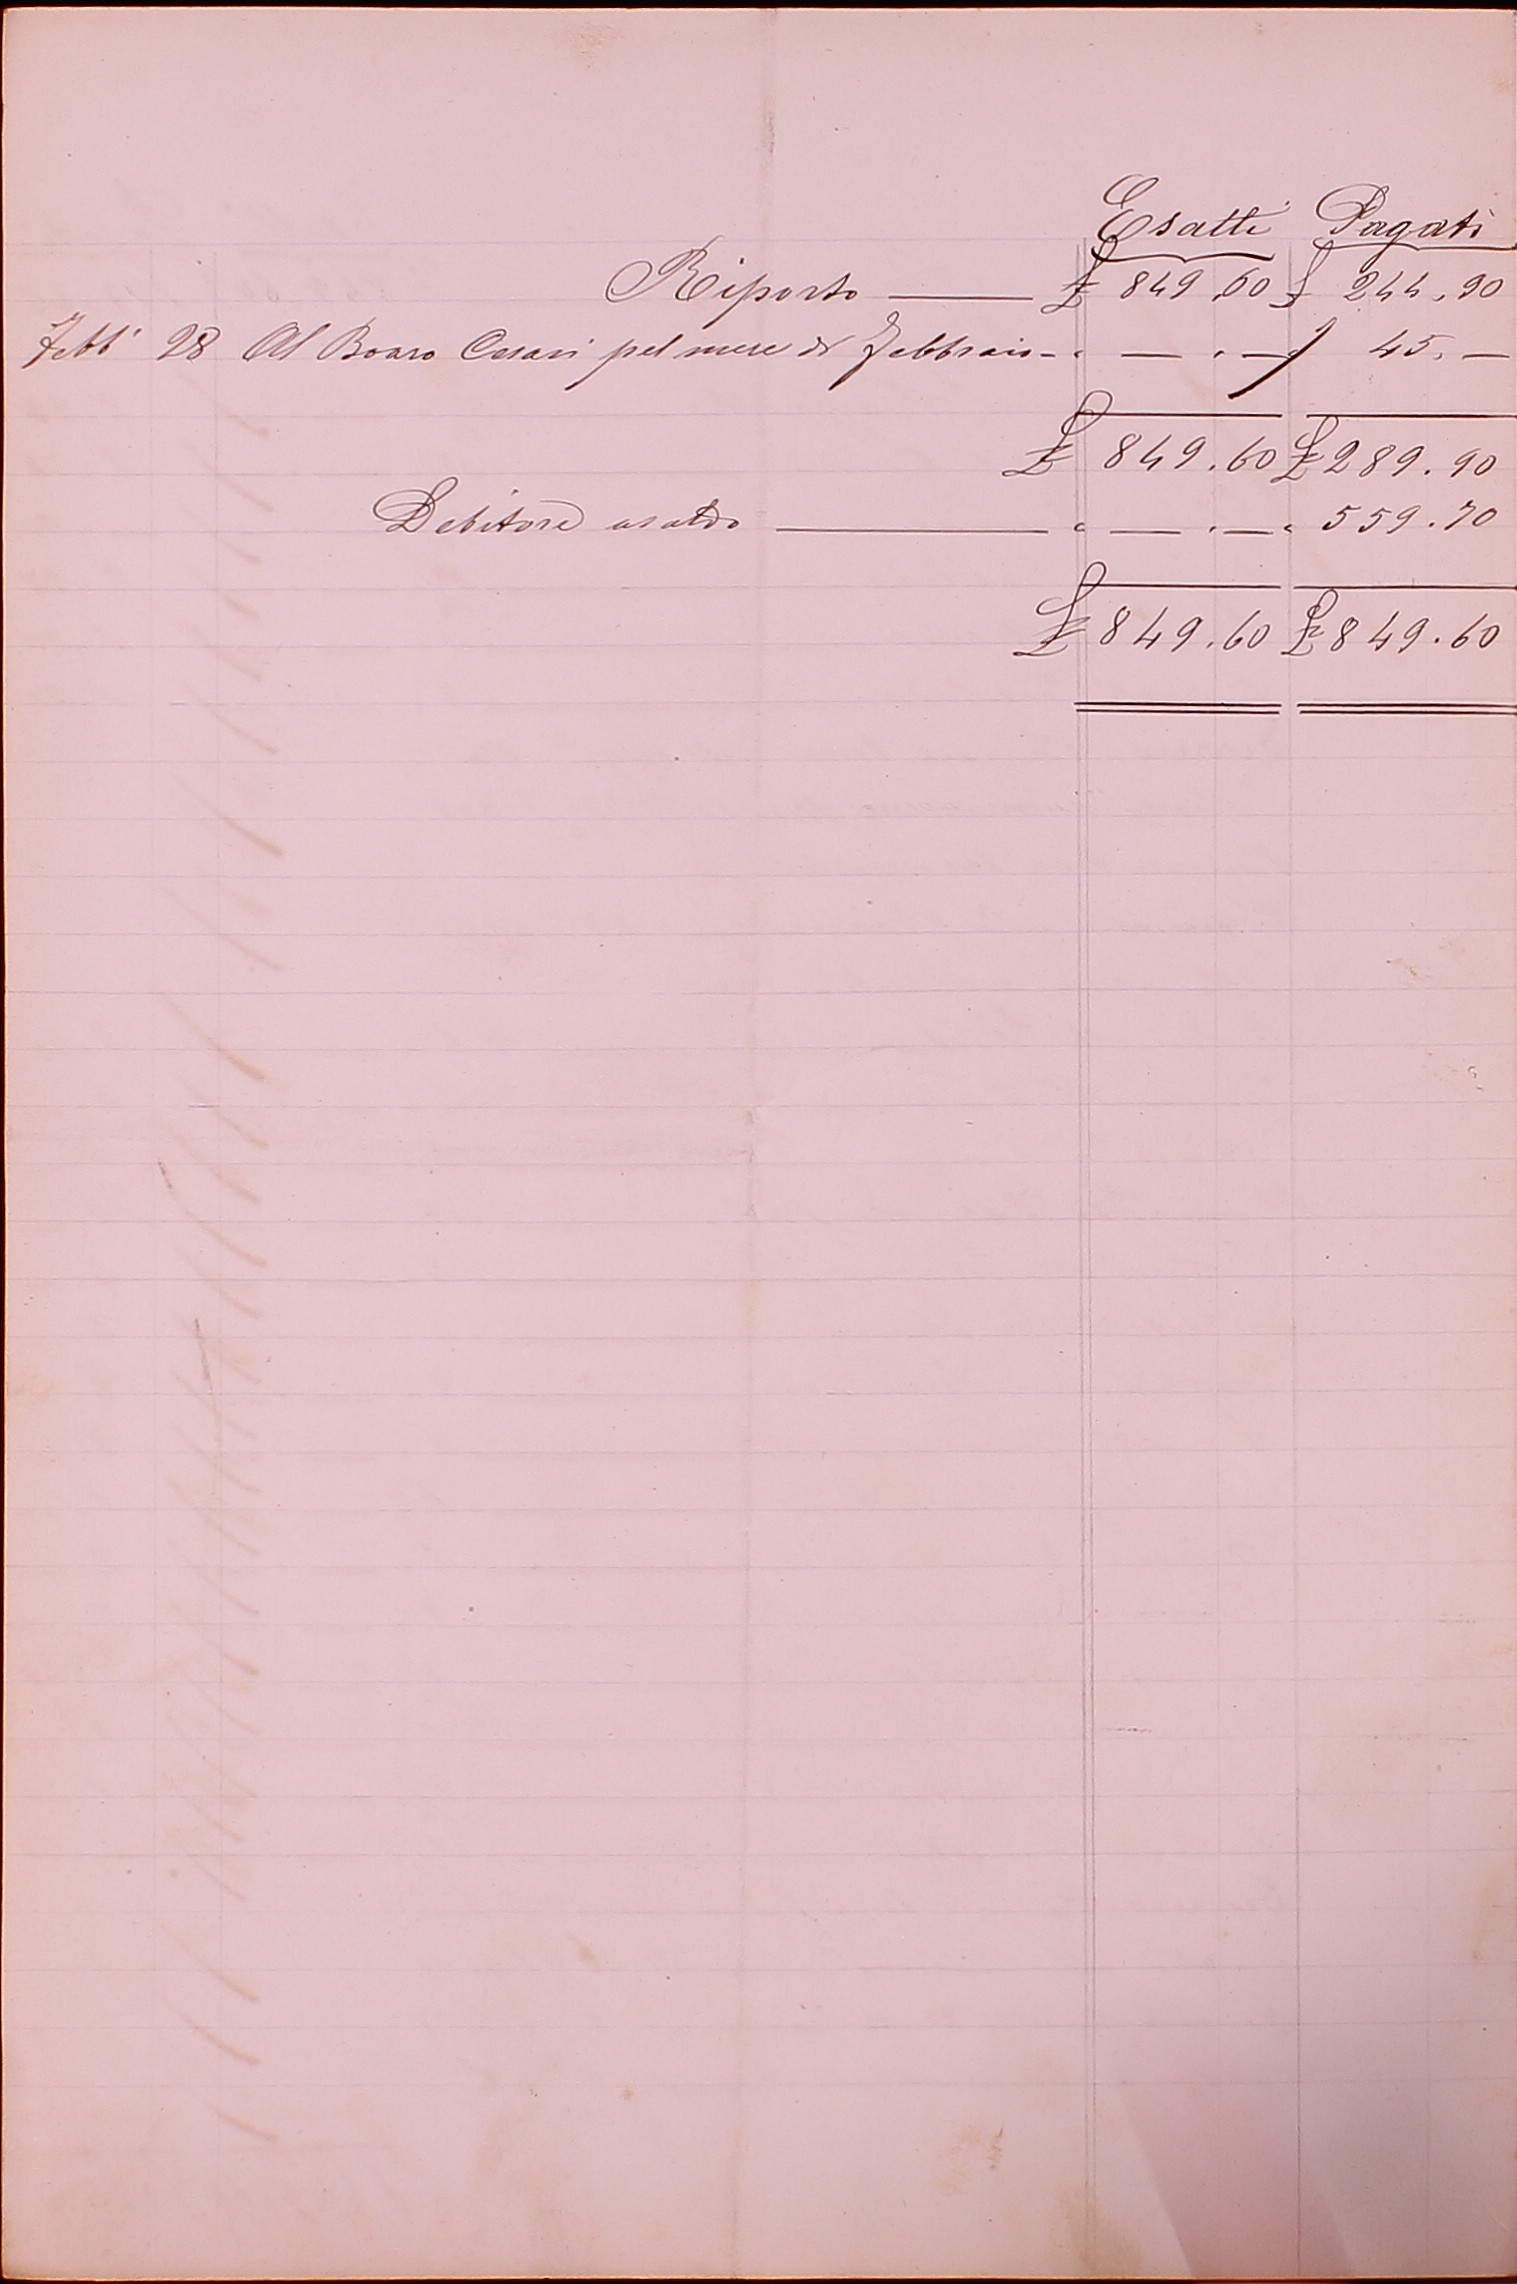 Esatti Pagati
Riporto £ 849.60 £ 244.90
Febb° 28 Al Boaro Cesari pel mese di Febbraio - " — . — " 45. —
£ 849.60 £ 289.90
Debitore a saldo " — . — " 559.70
£ 849.60 £ 849.60